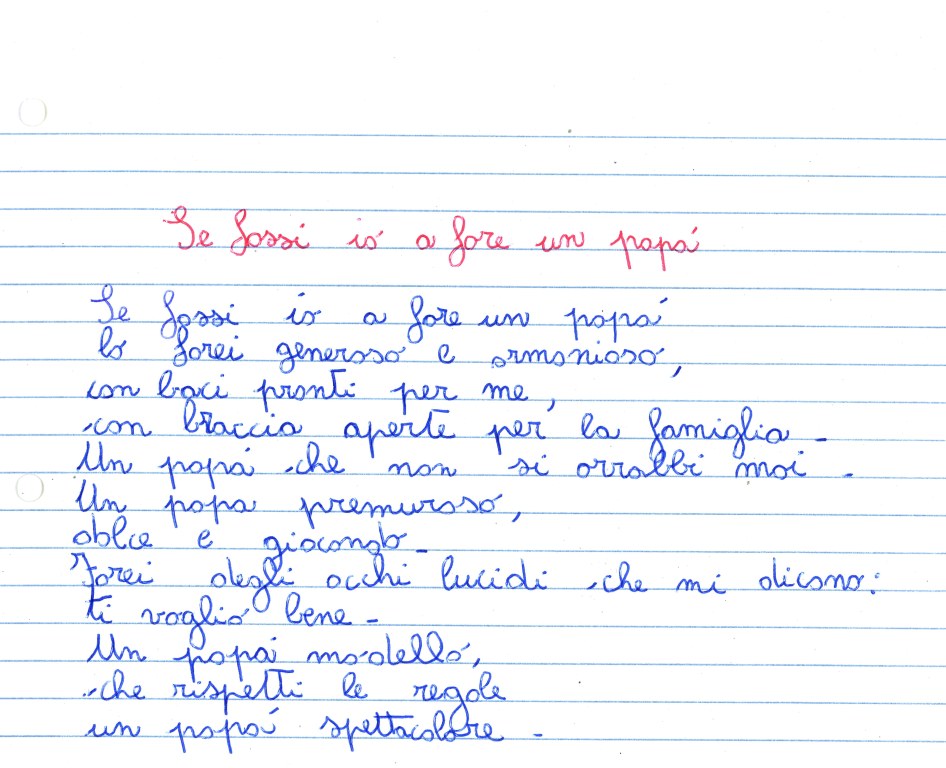 Se fossi io a fare un papà
Se fossi io a fare un papà
lo farei generoso e armonioso,
con baci pronti per me,
con braccia aperte per la famiglia.
Un papà che non si arrabbi mai.
Un papà premuroso,
dolce e giocondo.
Farei degli occhi lucidi che mi dicono:
ti voglio bene.
Un papà modello,
che rispetti le regole
un papà spettacolare.